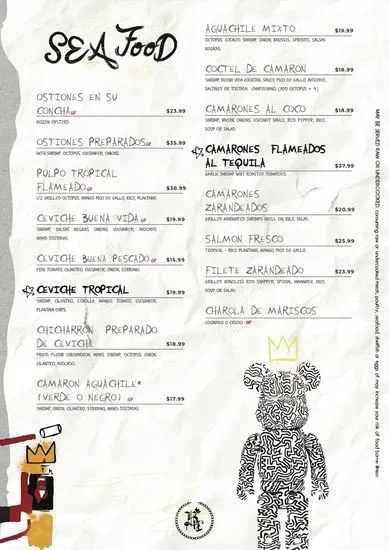 SEA FOOD
OSTIONES EN SU
CONCHA GF $23.99
DOZEN OYSTERS
OSTIONES PREPARADOS GF $35.99
WITH SHRIMP, OCTOPUS, CUCUMBER, ONIONS.
PULPO TROPICAL
FLAMEADO GF $38.99
1/2 GRILLED OCTOPUS, MANGO PICO DE GALLO, RICE, PLANTAINS.
CEVICHE BUENA VIDA GF $19.99
SHRIMP, SALSAS NEGRAS, ONIONS, CUCUMBER, AVOCADO,
MAYO-TOSTADAS
CEVICHE BUENA PESCADO GF $15.99
FISH, TOMATO, CILANTRO, CUCUMBER, ONION, SERRANO.
CEVICHE TROPICAL $19.99
SHRIMP, CILANTRO, CEBOLLA, MANGO, TOMATO, CUCUMBER,
PLANTAIN CHIPS.
CHICHARRÓN PREPARADO
DE CEVICHE $18.99
FRIED FLOUR CHICHARRON, MAYO, SHRIMP, OCTOPUS, ONION,
CILANTRO, AVOCADO.
CAMARON AGUACHILE*
(VERDE O NEGRO) GF $17.99
SHRIMP, ONION, CILANTRO, SERRANO, MAYO-TOSTADAS
AGUACHILE MIXTO $19.99
OCTOPUS, COOKED SHRIMP, ONION, BRUSSEL SPROUTS, SALSAS
NEGRAS.
COCTEL DE CAMARON $18.99
SHRIMP, BUENA VIDA COCKTAIL SAUCE, PICO DE GALLO, AVOCADO,
SALTINES OR TOSTADA (ADD OCTOPUS + 4)
CAMARONES AL COCO $18.99
SHRIMP, BACON, ONIONS, COCONUT SAUCE, RED PEPPER, RICE,
SOUP OR SALAD.
CAMARONES FLAMEADOS
AL TEQUILA $37.99
GARLIC SHRIMP WHIT ROASTED TOMATOES.
CAMARONES
ZARANDEADOS $20.99
GRILLED MARINATED SHRIMPS SHELL ON, RICE, SALAD.
SALMON FRESCO $25.99
TROPICAL - RICE PLANTAINS, MANGO, PICO DE GALLO.
FILETE ZARANDEADO $23.99
GRILLED BONELESS RED SNAPPER, SPECIAL MARINADE, RICE,
SOUP OR SALAD.
CHAROLA DE MARISCOS
COCINADO O CRUDO MP
MAY BE SERVED RAW OR UNDERCOOKED, consuming raw or undercooked meats poultry, seafood, shellfish or eggs may increase your risk of food borne illness